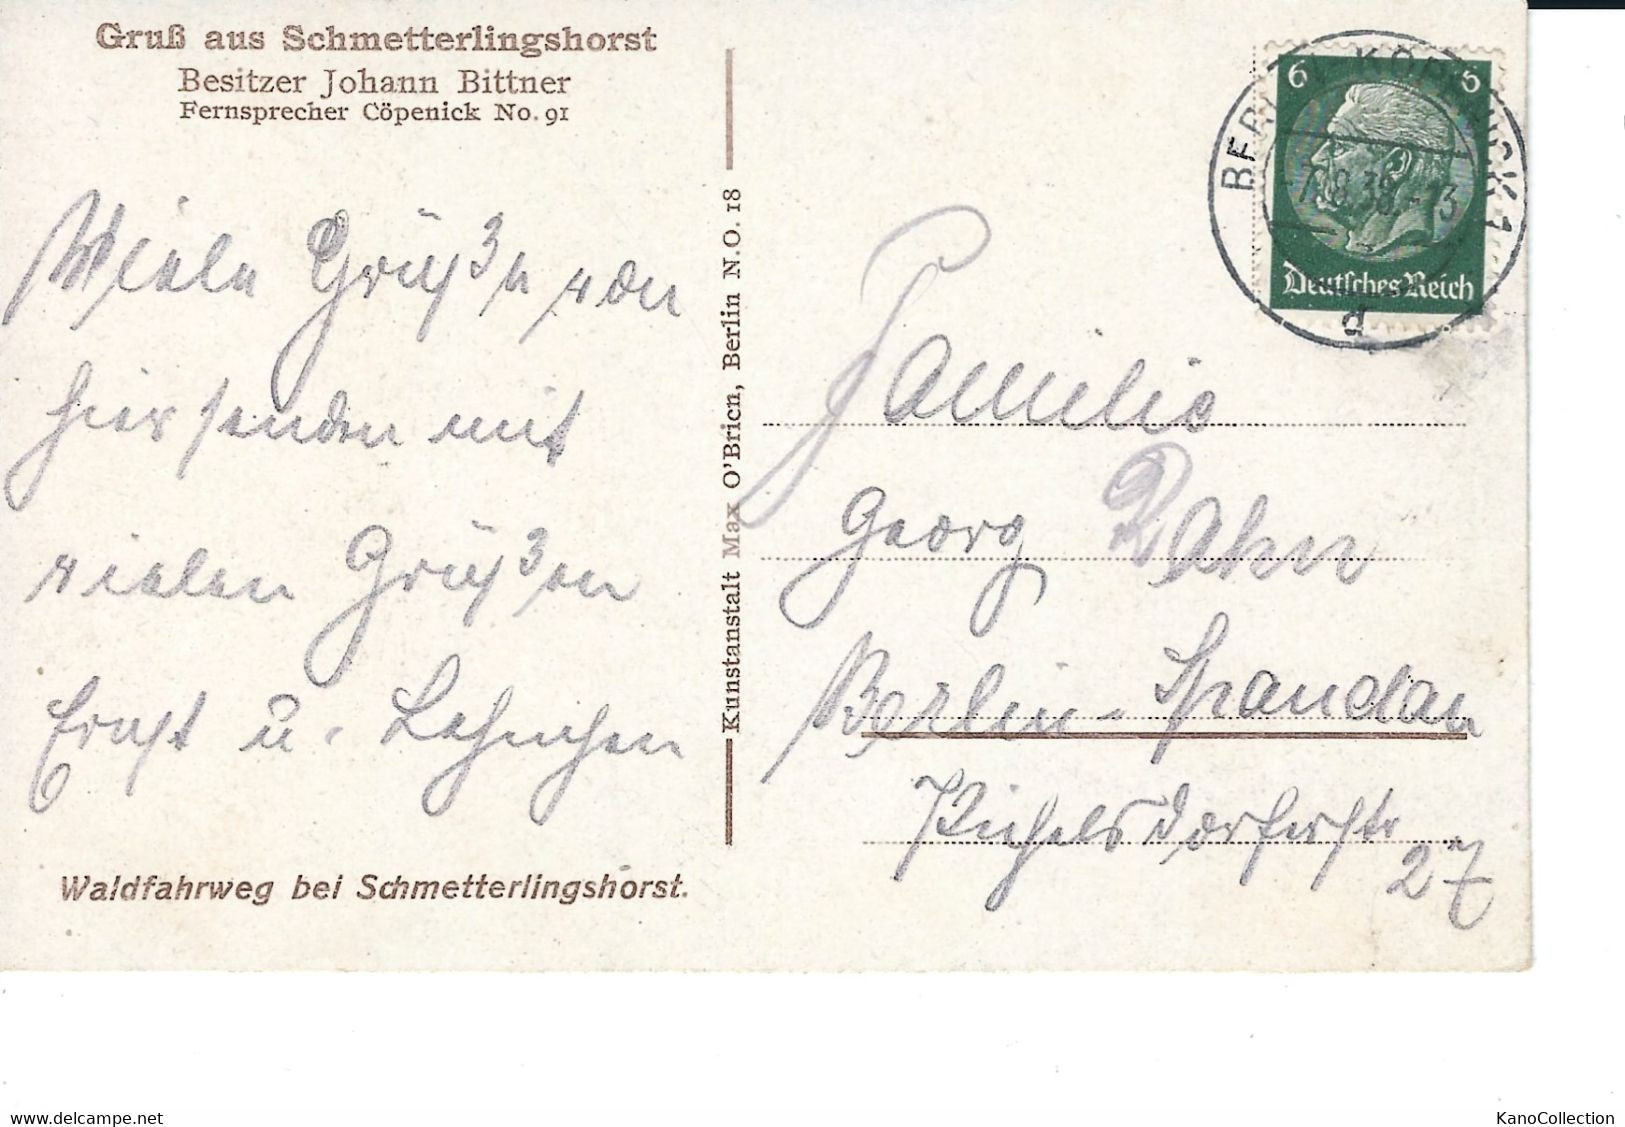 Gruß aus Schmetterlingshorst
Besitzer Johann Bittner
Fernsprecher Cöpenick No. 91
Viele Grüße von
hier senden mit
vielen Grüßen
Ernst u. Lehnchen
Waldfahrweg bei Schmetterlingshorst.
Kunstanstalt Max O'Brien, Berlin N.O. 18
6 6
Deutsches Reich
BERLIN-KÖPENICK 1
38.-13
d
Familie
Georg Rahn
Berlin-Spandau
Pichelsdorferstr
27
www.delcampe.net
KanoCollection